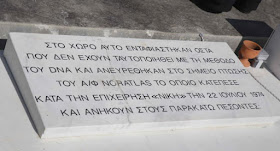 ΣΤΟ ΧΩΡΟ ΑΥΤΟ ΕΝΤΑΦΙΑΣΤΗΚΑΝ ΟΣΤΑ
ΠΟΥ ΔΕΝ ΕΧΟΥΝ ΤΑΥΤΟΠΟΙΗΘΕΙ ΜΕ ΤΗ ΜΕΘΟΔΟ
ΤΟΥ DNA ΚΑΙ ΑΝΕΥΡΕΘΗΚΑΝ ΣΤΟ ΣΗΜΕΙΟ ΠΤΩΣΗΣ
ΤΟΥ Α/Φ NORATLAS ΤΟ ΟΠΟΙΟ ΚΑΤΕΠΕΣΕ
ΚΑΤΑ ΤΗΝ ΕΠΙΧΕΙΡΗΣΗ «ΝΙΚΗ» ΤΗΝ 22 ΙΟΥΛΙΟΥ 1974
ΚΑΙ ΑΝΗΚΟΥΝ ΣΤΟΥΣ ΠΑΡΑΚΑΤΩ ΠΕΣΟΝΤΕΣ